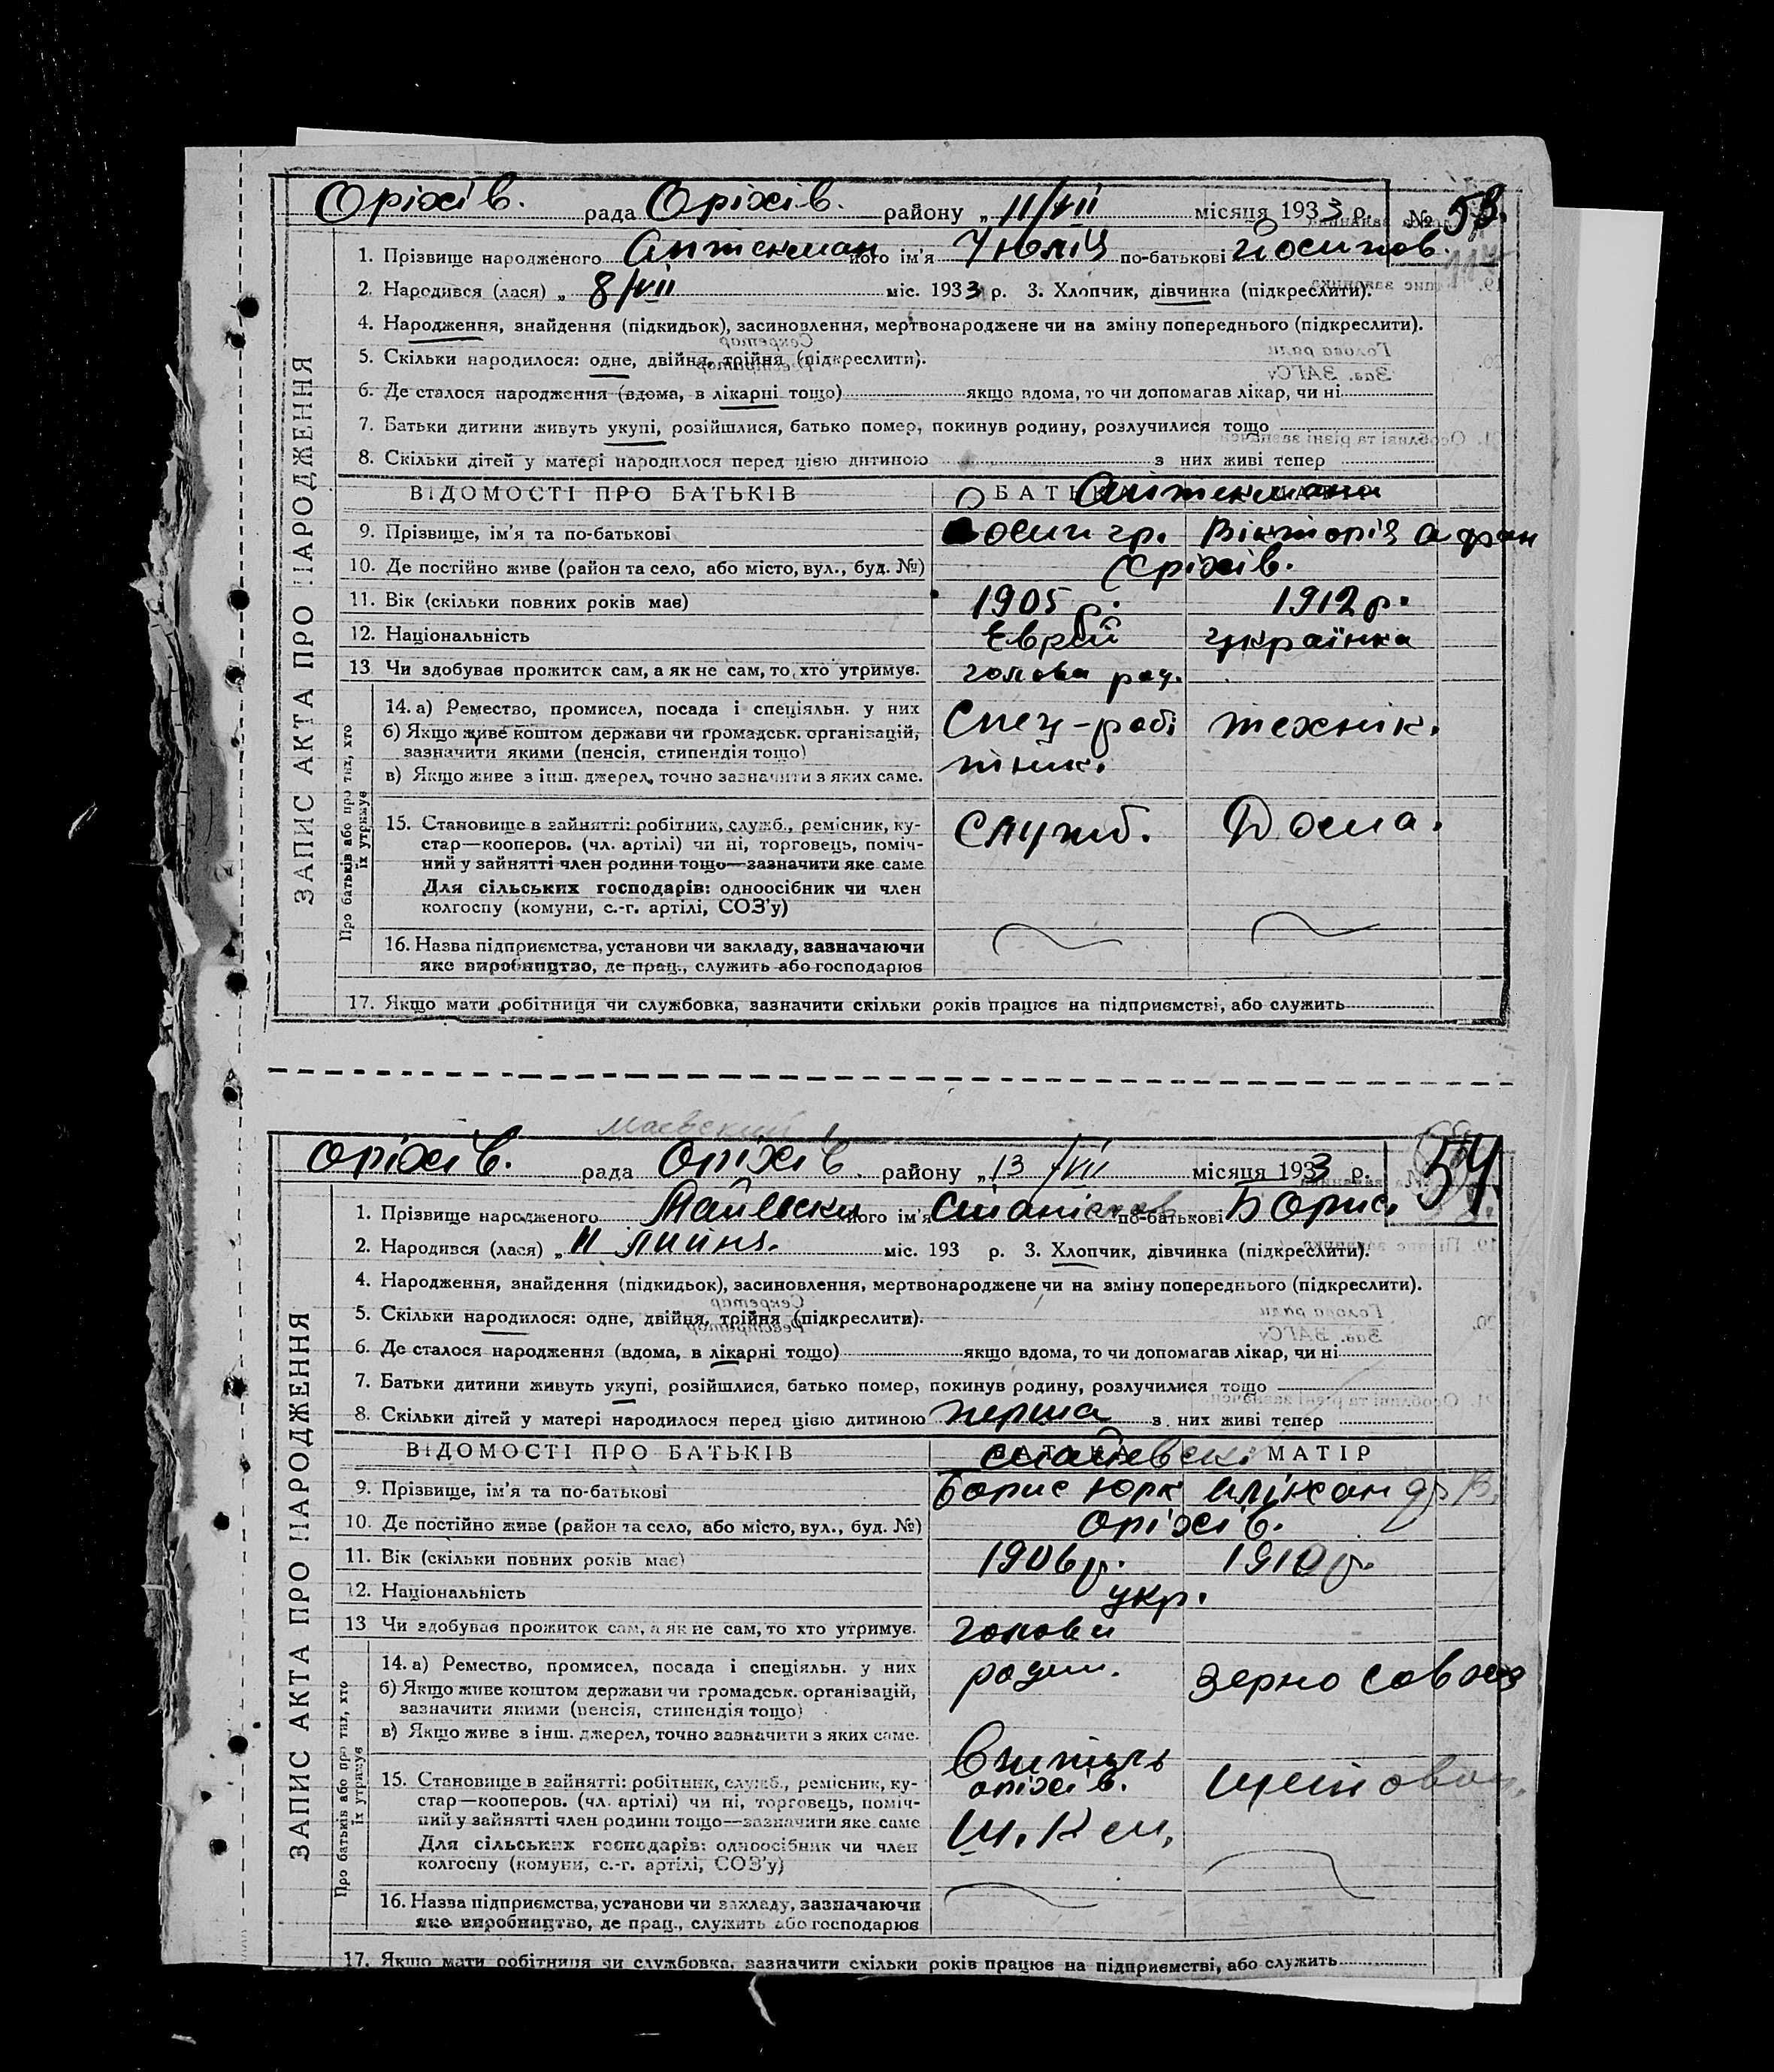 Оріхів. рада Оріхів. району „ 11/VII місяця 1933 р. № 53.
1. Прізвище народженого Аптекман його ім'я Юлія по-батькові Йосипов.
2. Народився (лася) „ 8/VII міс. 1933 р. 3. Хлопчик, дівчинка (підкреслити).
4. Народження, знайдення (підкидьок), засиновлення, мертвонароджене чи на зміну попереднього (підкреслити).
5. Скільки народилося: одне, двійня, трійня (підкреслити).
6. Де сталося народження (вдома, в лікарні тощо) якщо вдома, то чи допомагав лікар, чи ні
7. Батьки дитини живуть укупі, розійшлися, батько помер, покинув родину, розлучилися тощо
8. Скільки дітей у матері народилося перед цією дитиною з них живі тепер
ЗАПИС АКТА ПРО НАРОДЖЕННЯ
ВІДОМОСТІ ПРО БАТЬКІВ БАТЬК Аптекмани
9. Прізвище, ім'я та по-батькові Осип гр. Вікторія Афан
10. Де постійно живе (район та село, або місто, вул., буд. №) Оріхів.
11. Вік (скільки повних років має) 1905 р. 1912 р.
12. Національність Єврей українка
13 Чи здобував прожиток сам, а як не сам, то хто утримує. голова род.
Про батьків або про тих, хто їх утримує
14. а) Ремество, промисел, посада і спеціяльн. у них
б) Якщо живе коштом держави чи громадськ. організацій, зазначити якими (пенсія, стипендія тощо)
в) Якщо живе з інш. джерел, точно зазначити з яких саме.
Спец-робітник. технік.
15. Становище в зайнятті: робітник, служб., ремісник, ку-
стар—кооперов. (чл. артілі) чи ні, торговець, поміч-
ний у зайнятті член родини тощо—зазначити яке саме
Для сільських господарів: одноосібник чи член
колгоспу (комуни, с.-г. артілі, СОЗ'у)
Служб. Дома.
16. Назва підприємства, установи чи закладу, зазначаючи
яке виробництво, де прац., служить або господарює
17. Якщо мати робітниця чи службовка, зазначити скільки років працює на підприємстві, або служить
Маевский
Оріхів. рада Оріхів. району „ 13/VII місяця 1933 р. 54.
1. Прізвище народженого Майевски його ім'я Станіслав по-батькові Борис.
2. Народився (лася) „ 11 липня. міс. 193 р. 3. Хлопчик, дівчинка (підкреслити).
4. Народження, знайдення (підкидьок), засиновлення, мертвонароджене чи на зміну попереднього (підкреслити).
5. Скільки народилося: одне, двійня, трійня (підкреслити).
6. Де сталося народження (вдома, в лікарні тощо) якщо вдома, то чи допомагав лікар, чи ні
7. Батьки дитини живуть укупі, розійшлися, батько помер, покинув родину, розлучилися тощо
8. Скільки дітей у матері народилося перед цією дитиною перша з них живі тепер
ЗАПИС АКТА ПРО НАРОДЖЕННЯ
ВІДОМОСТІ ПРО БАТЬКІВ МАТІР
9. Прізвище, ім'я та по-батькові Борис Юрк
10. Де постійно живе (район та село, або місто, вул., буд. №) Оріхів.
11. Вік (скільки повних років має) 1906 р. 1910 р.
12. Національність укр.
13 Чи здобував прожиток сам, а як не сам, то хто утримує. голова
Про батьків або про тих, хто їх утримує
14. а) Ремество, промисел, посада і спеціяльн. у них
б) Якщо живе коштом держави чи громадськ. організацій, зазначити якими (пенсія, стипендія тощо)
в) Якщо живе з інш. джерел, точно зазначити з яких саме.
родин. зерно совхоз
15. Становище в зайнятті: робітник, служб., ремісник, ку-
стар—кооперов. (чл. артілі) чи ні, торговець, поміч-
ний у зайнятті член родини тощо—зазначити яке саме
Для сільських господарів: одноосібник чи член
колгоспу (комуни, с.-г. артілі, СОЗ'у)
Вчитель
оріхів.
16. Назва підприємства, установи чи закладу, зазначаючи
яке виробництво, де прац., служить або господарює
17. Якщо мати робітниця чи службовка, зазначити скільки років працює на підприємстві, або служить